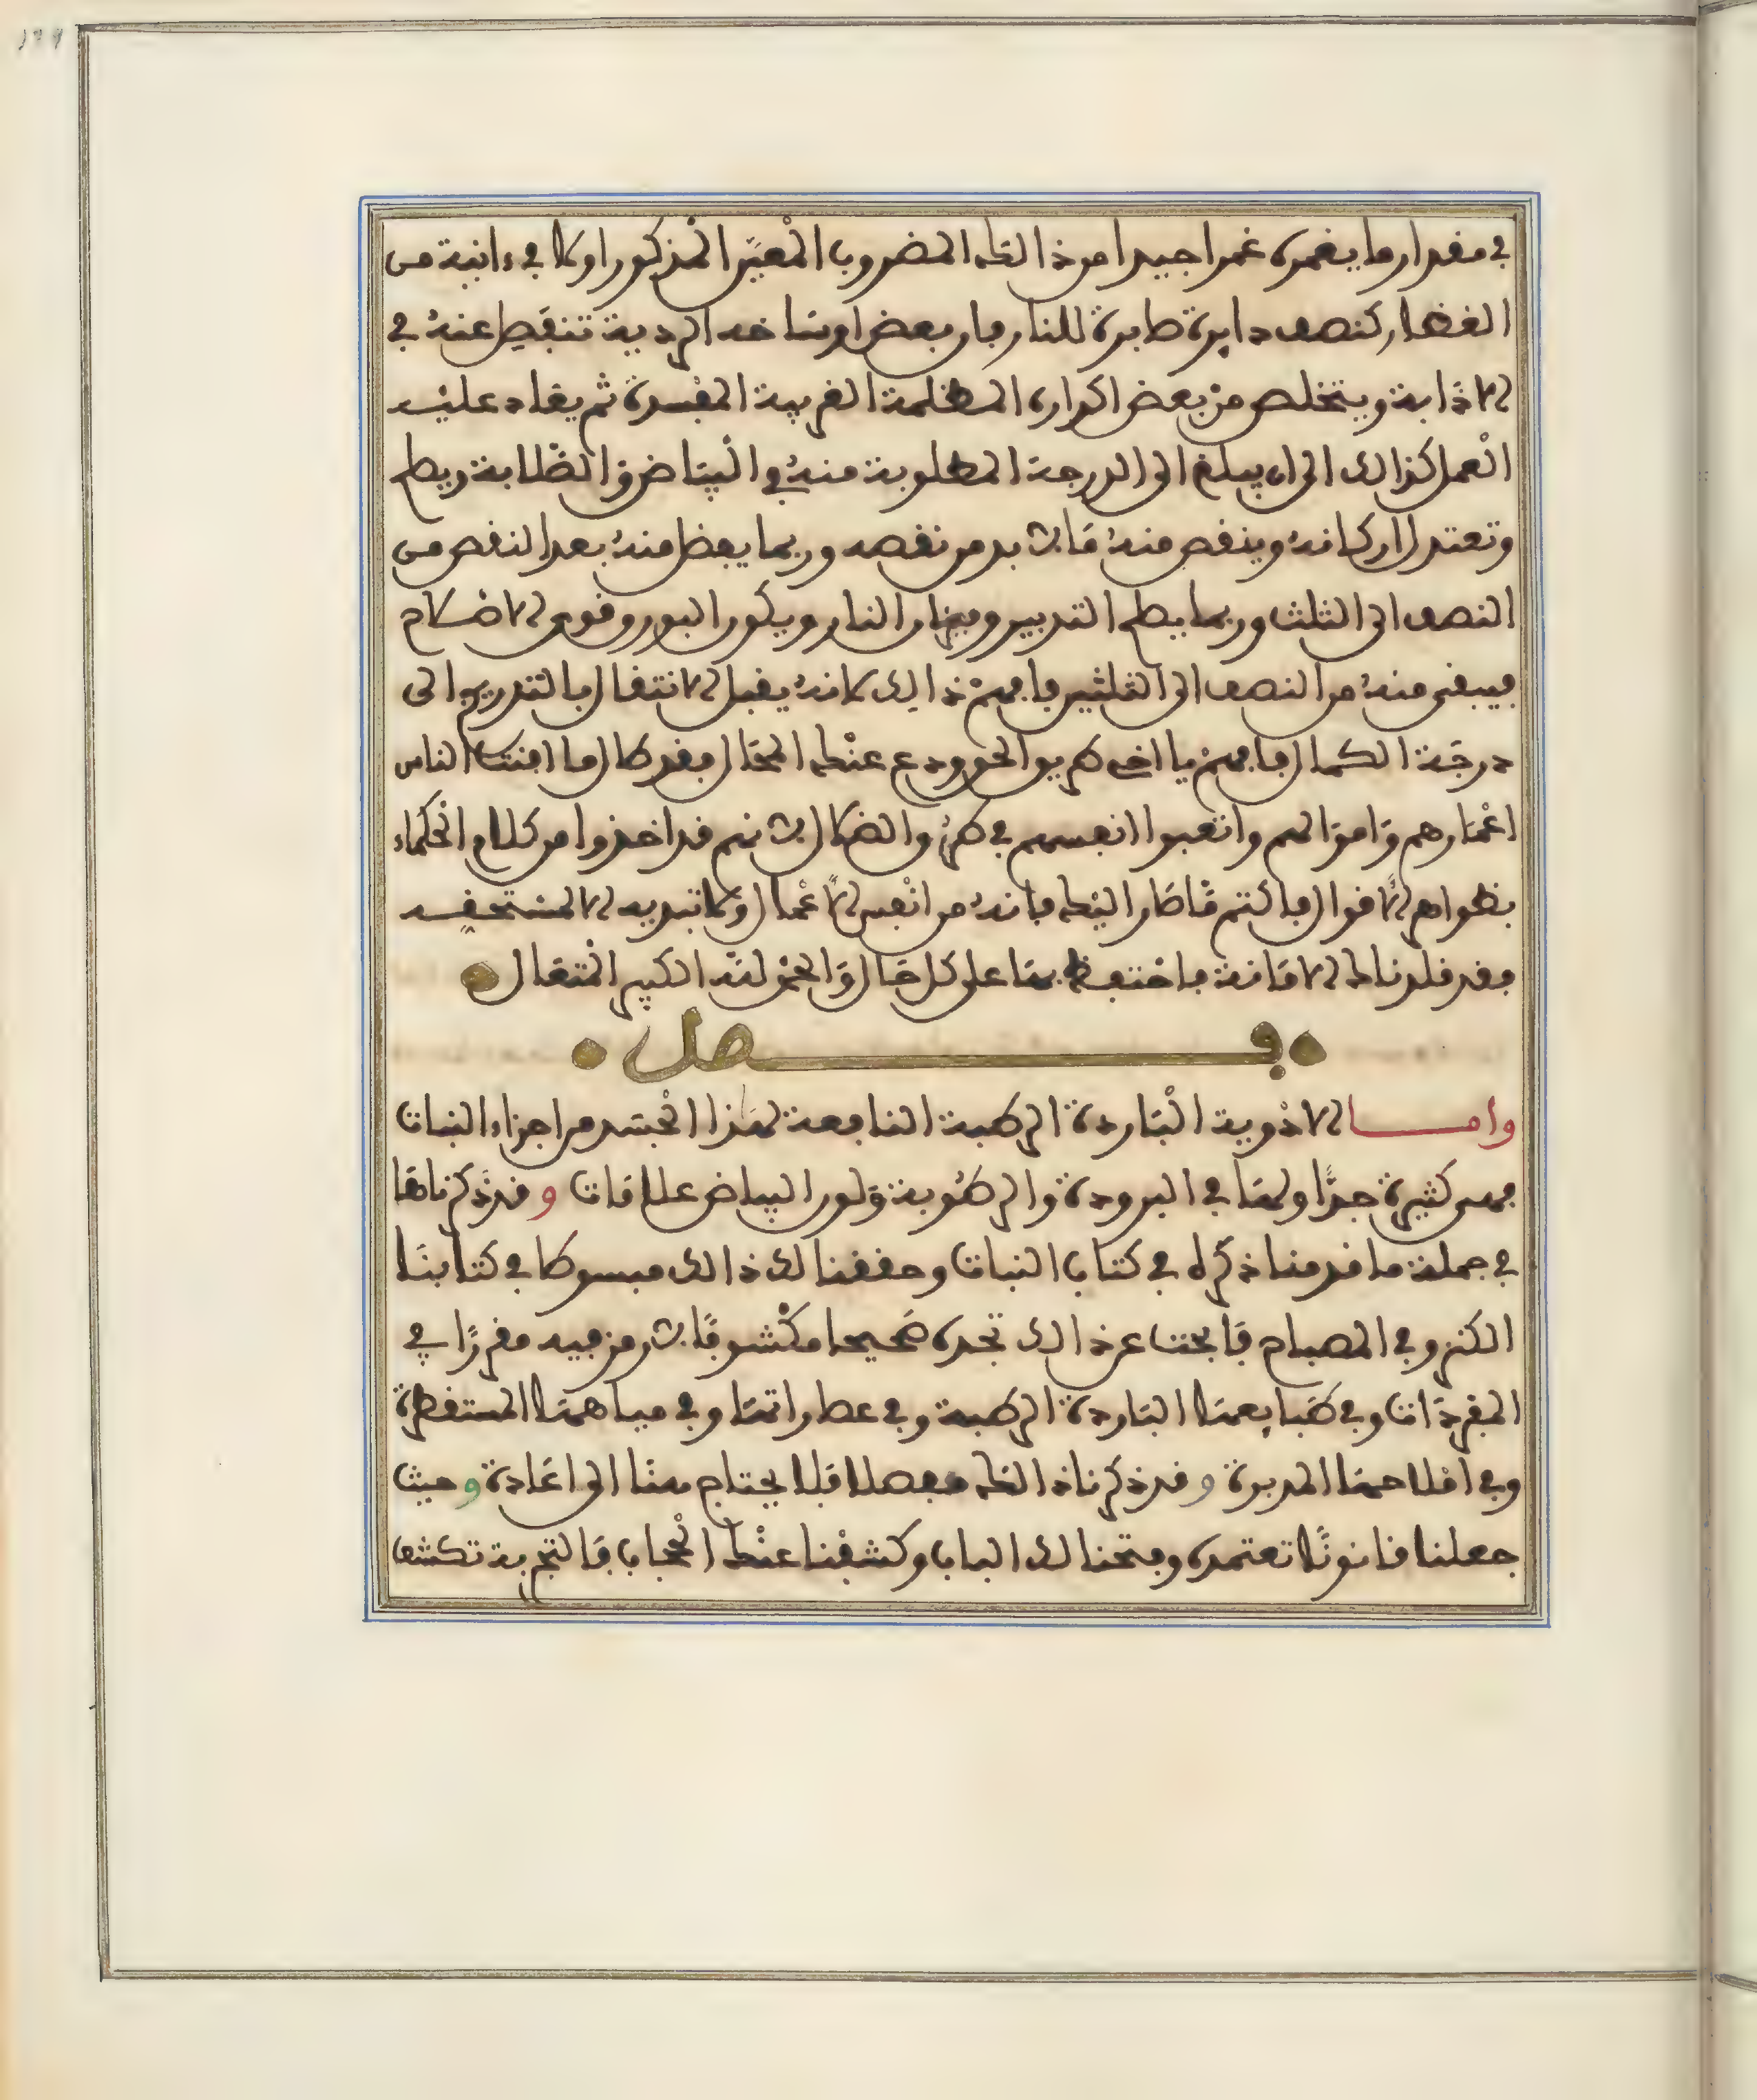 في مقدار ما يغمره غمرا جيدا من ذالك المضروب المعيّن المذكور اولا في ءانية من
الفخار كنصف دايرة صابرة للنار فان بعض اوساخه الردية تنقص عنه في
الاذابة ويتخلص من بعض اكداره المظلمة الغريبة المفسدة ثم يعاد عليه
العمل كذالك الى ان يبلغ الى الدرجة المطلوبة منه في البياض والصّلابة ويطهر
وتعتدل اركانه وينقص منه ما لا بد من نقصه وربما يفضل منه بعد النقص من
النصف الى الثلث وربما يطهر التدبير وميزان النار ويكون البورق قوي الاضلام
فيبقى منه من النصف الى الثلثين فافهم ذالك لانه يقبل الانتقال بالتدريج الى
درجة الكمال فافهم يا اخي طريق الحق ودع عنك المحال فقد طال ما افنت الناس
اعمارهم واموالهم واتعبوا انفسهم في طرق والضلال لانهم قد اخذوا من كلام الحكماء
بظواهر الاقوال فاكتم ما صار اليك فانه من انفس الاعمال ولا تبديه الا لمستحقه
فقد قلدناك الامانة فاحتفظ بها على كل حال والحمد لله الكبير المتعال
فصل
واما الادوية الباردة الرطبة النافعة لهذا الجسد من اجزاء النبات
فهي كثيرة جدًّا ولها في البرودة والرطوبة ولون البياض علامات وقد ذكرناها
في جملة ما قدمنا ذكره في كتاب النبات وحققنا لك ذالك مبسوطا في كتابنا
الكنز وفي المصباح فابحث عن ذالك تجده صحيحا مكشوفا لا رمز فيه مقررًا في
المفردات وفي طبايعها الباردة الرطبة وفي عصاراتها وفي مياهها المستقطرة
وفي املاحها المدبرة وقد ذكرنا ذالك مفصلا فلا يحتاج هنا الى اعادة وحيث
جعلنا قانونًا تعتمده وفتحنا لك الباب وكشفنا عنك الحجاب فالتجربة تكشف